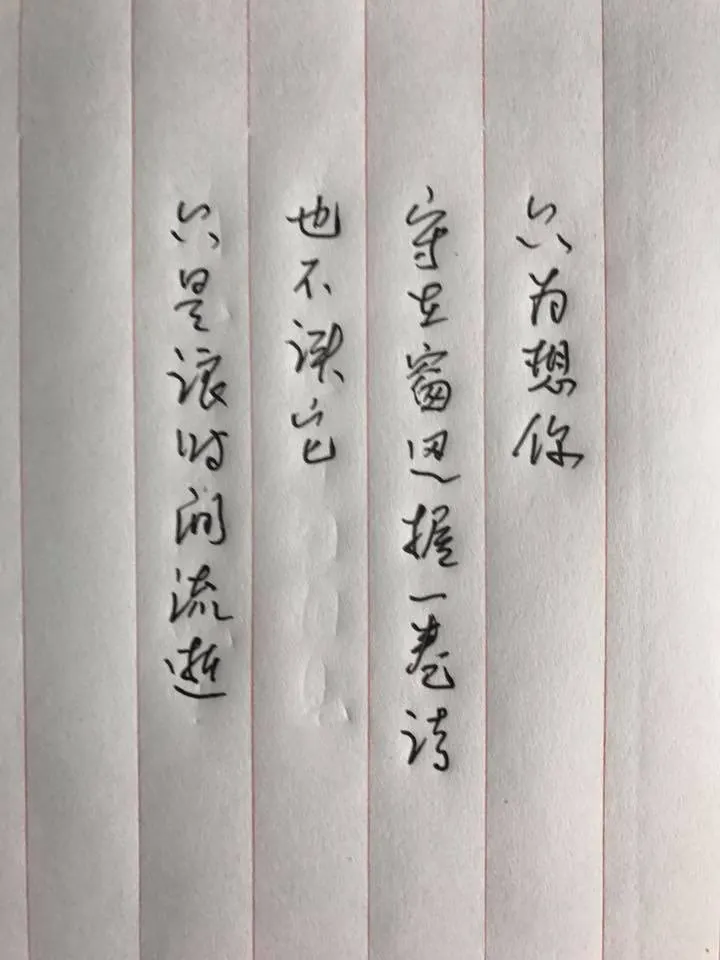 只为想你
守在窗边握一卷诗
也不读它
只是讓时间流逝